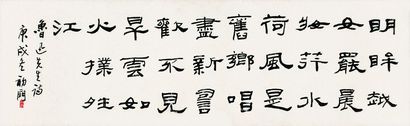 明眸越
女罷晨
妝荇水
荷風是
舊鄉唱
盡新詞
歡不見
旱雲如
火撲晴
江
魯迅先生詩
庚戌冬